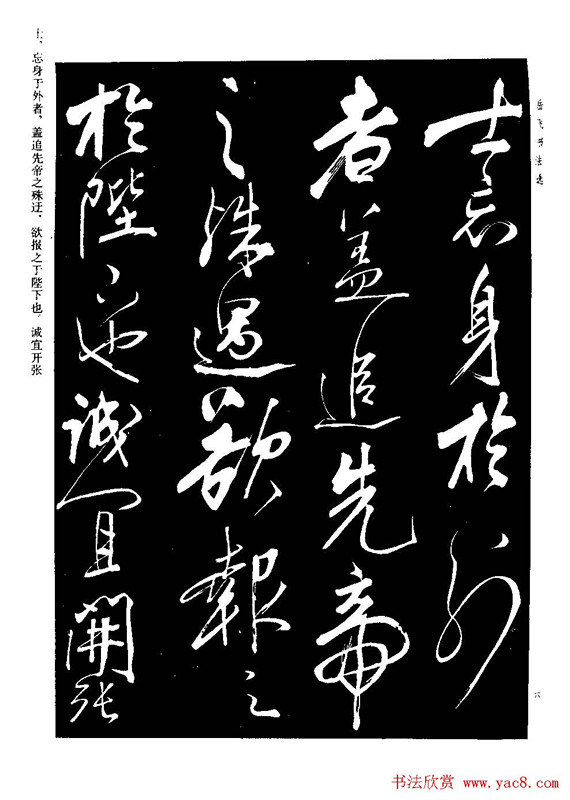 岳飞书法选
士忘身於外
者盖追先帝
之殊遇欲報之
於陛下也诚宜開张
士、忘身于外者，盖追先帝之殊迂，欲报之于陛下也。诚宜开张
六
书法欣赏 www.yac8.com